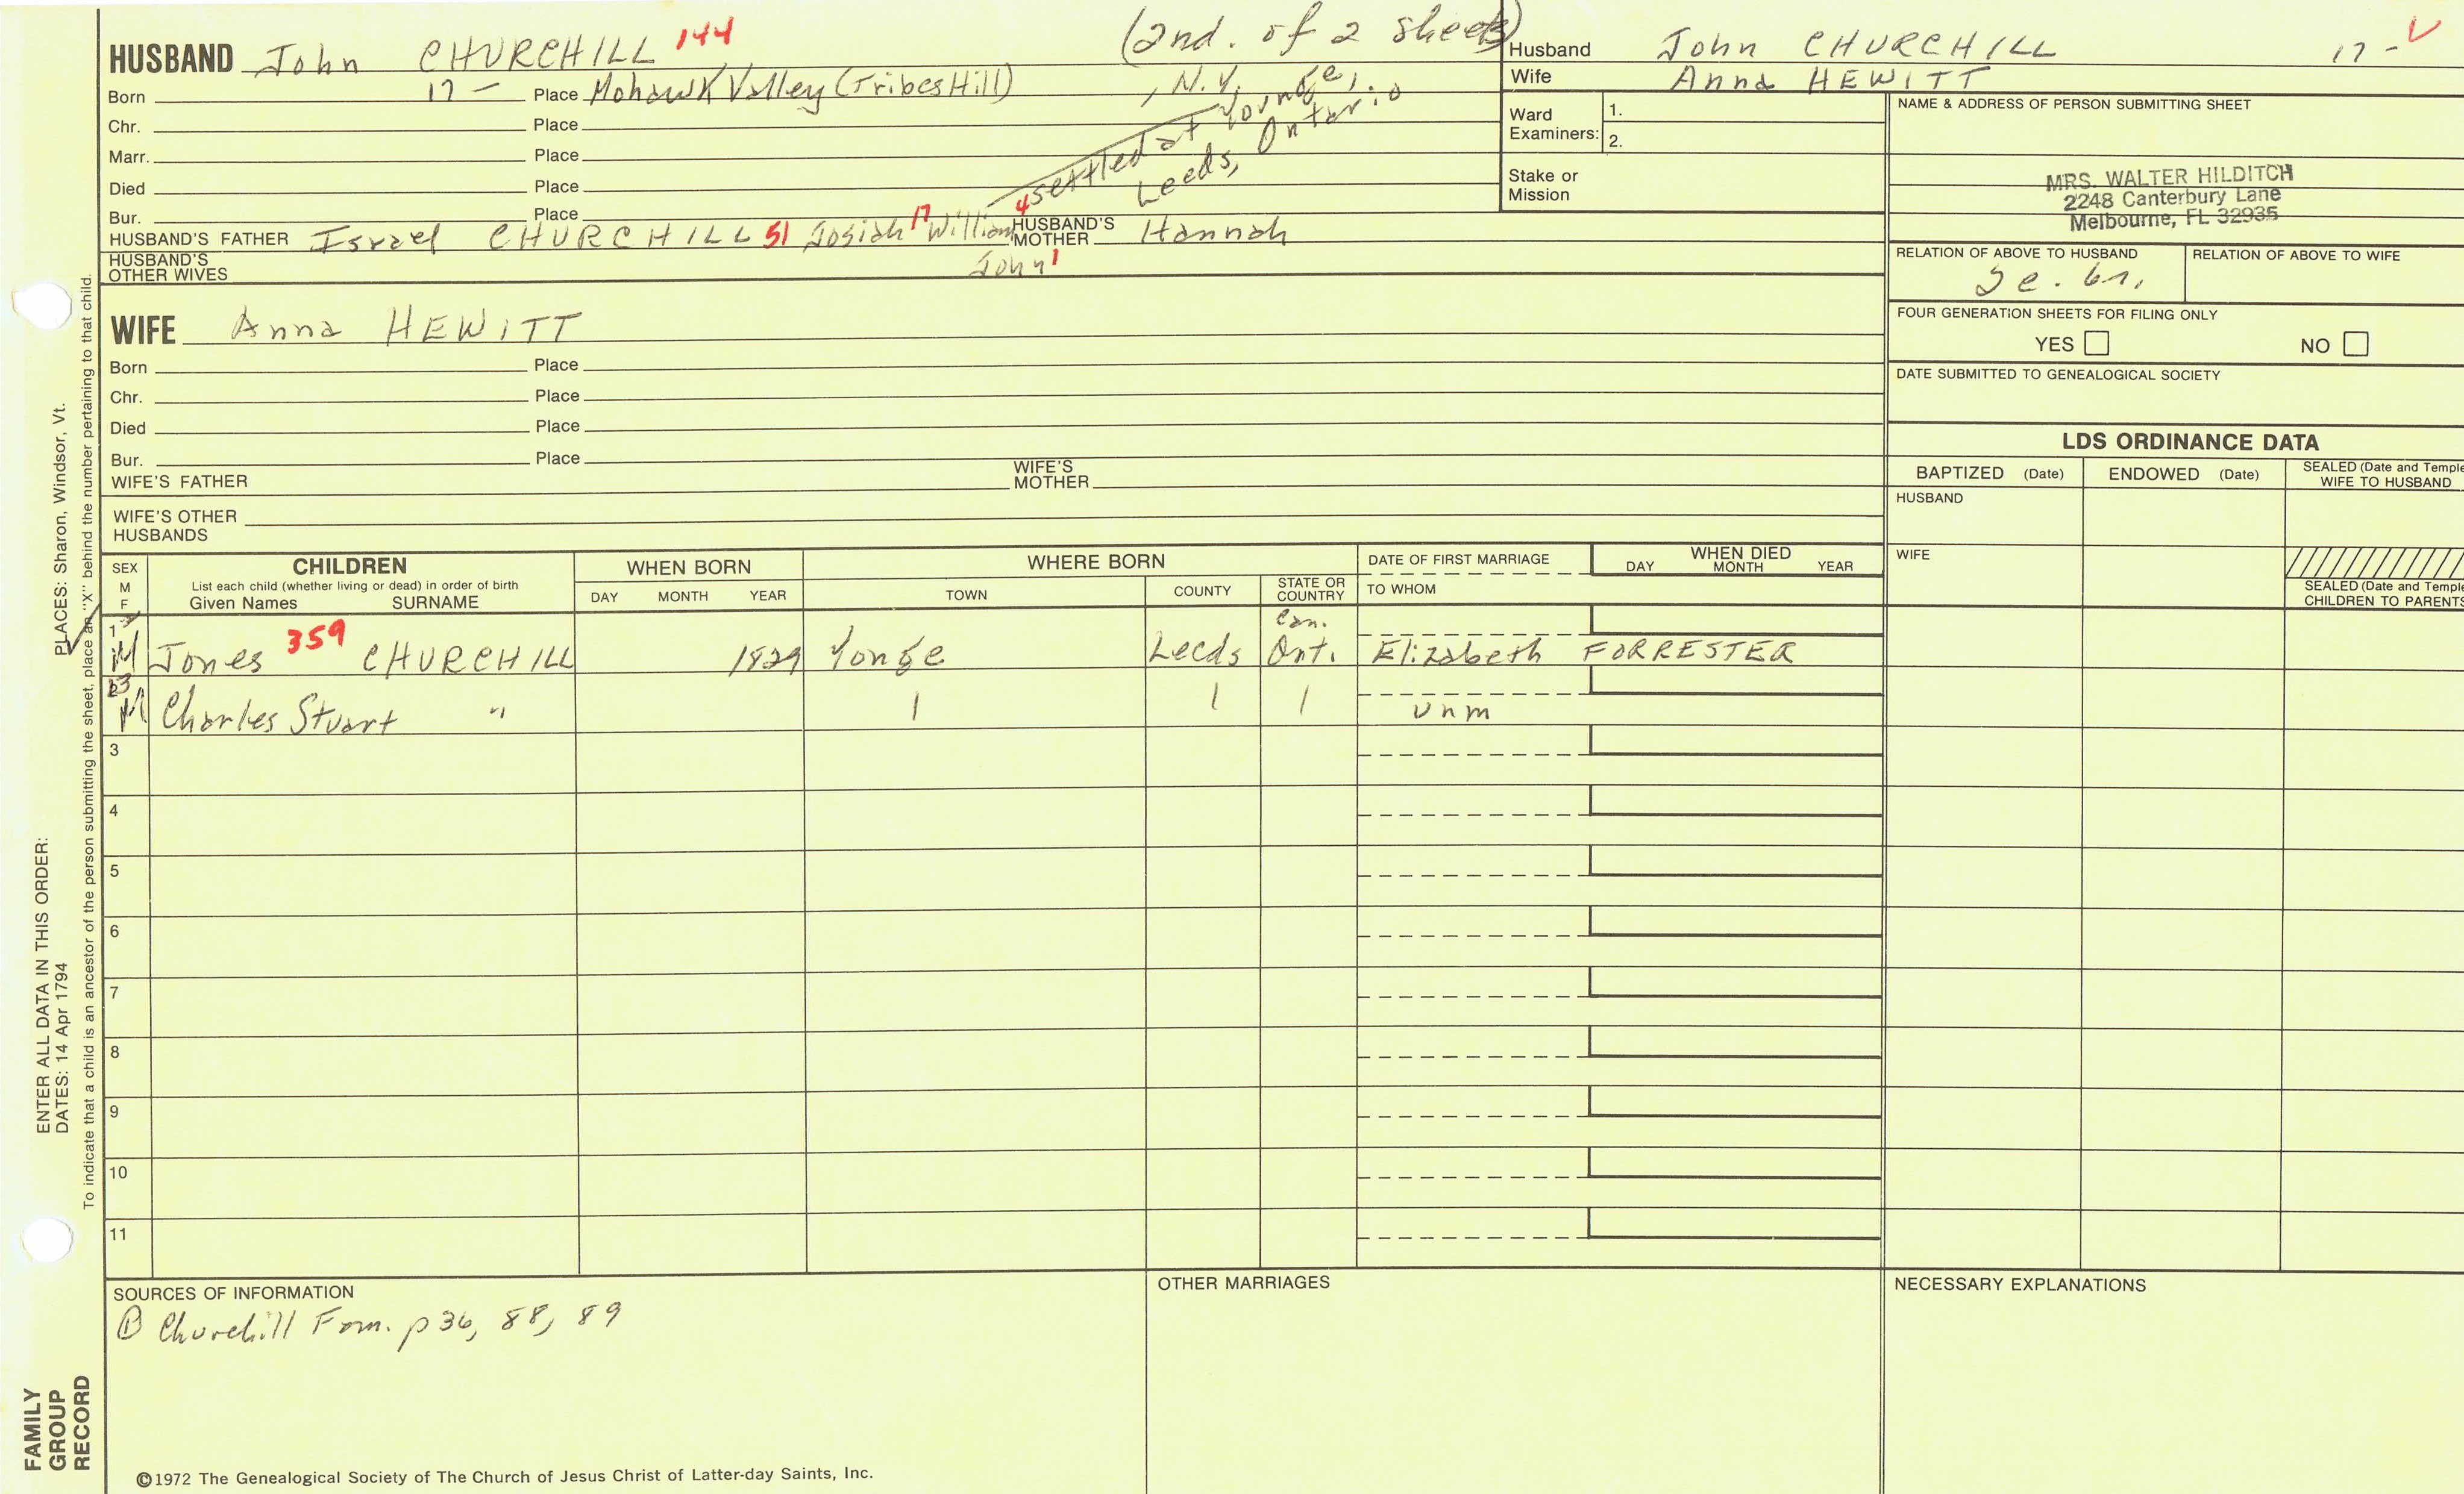 (2nd. of 2 sheets)
HUSBAND John CHURCHILL 144
Born 17 - Place Mohawk Valley (Tribes Hill), N.Y.
Chr. Place
Marr. Place
Died Place
Bur. Place
settled at Younge,
Leeds, Ontario
HUSBAND'S FATHER Israel CHURCHILL 51 Josiah 17 William 4 HUSBAND'S MOTHER Hannah
John 1
HUSBAND'S OTHER WIVES
Husband John CHURCHILL 17-
Wife Anna HEWITT
Ward Examiners: 1.
2.
Stake or Mission
NAME & ADDRESS OF PERSON SUBMITTING SHEET
MRS. WALTER HILDITCH
2248 Canterbury Lane
Melbourne, FL 32935
RELATION OF ABOVE TO HUSBAND RELATION OF ABOVE TO WIFE
FOUR GENERATION SHEETS FOR FILING ONLY
YES NO
DATE SUBMITTED TO GENEALOGICAL SOCIETY
WIFE Anna HEWITT
Born Place
Chr. Place
Died Place
Bur. Place
WIFE'S FATHER WIFE'S MOTHER
WIFE'S OTHER HUSBANDS
LDS ORDINANCE DATA
BAPTIZED (Date) ENDOWED (Date) SEALED (Date and Temple WIFE TO HUSBAND
HUSBAND
WIFE
SEALED (Date and Temple CHILDREN TO PARENTS
SEX M F
CHILDREN
List each child (whether living or dead) in order of birth
Given Names SURNAME
WHEN BORN
DAY MONTH YEAR
WHERE BORN
TOWN COUNTY STATE OR COUNTRY
DATE OF FIRST MARRIAGE
TO WHOM
WHEN DIED
DAY MONTH YEAR
Can.
M Jones 359 CHURCHILL 1829 Yonge Leeds Ont. Elizabeth FORRESTER
13
M Charles Stuart " unm
3
4
5
6
7
8
9
10
11
SOURCES OF INFORMATION
Churchill Fam. p 36, 88, 89
OTHER MARRIAGES
NECESSARY EXPLANATIONS
©1972 The Genealogical Society of The Church of Jesus Christ of Latter-day Saints, Inc.
FAMILY GROUP RECORD
ENTER ALL DATA IN THIS ORDER:
DATES: 14 Apr 1794 PLACES: Sharon, Windsor, Vt.
To indicate that a child is an ancestor of the person submitting the sheet, place an "X" behind the number pertaining to that child.